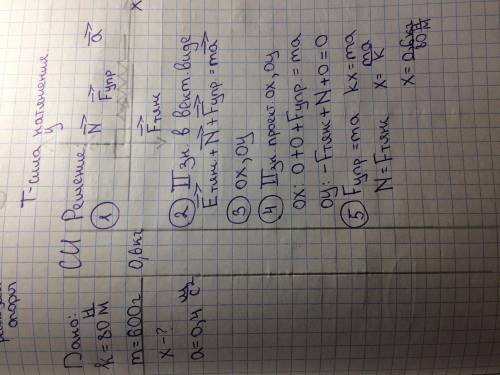 опоры
Т-сила натяжения
Дано:
k=80 Н/м
m=600г
x-?
a=0,4 м/с²
СИ
0,6кг
Решение:
у
① N Fупр a
x
Fтяж
② II зн. в вект. виде
Fтяж+N+Fупр=ma
③ ox, oy
④ II зн. проект. ox, oy
ox: 0+0+Fупр=ma
oy: -Fтяж+N+0=0
⑤ Fупр=ma kx=ma
N=Fтяж x=ma/k
x=